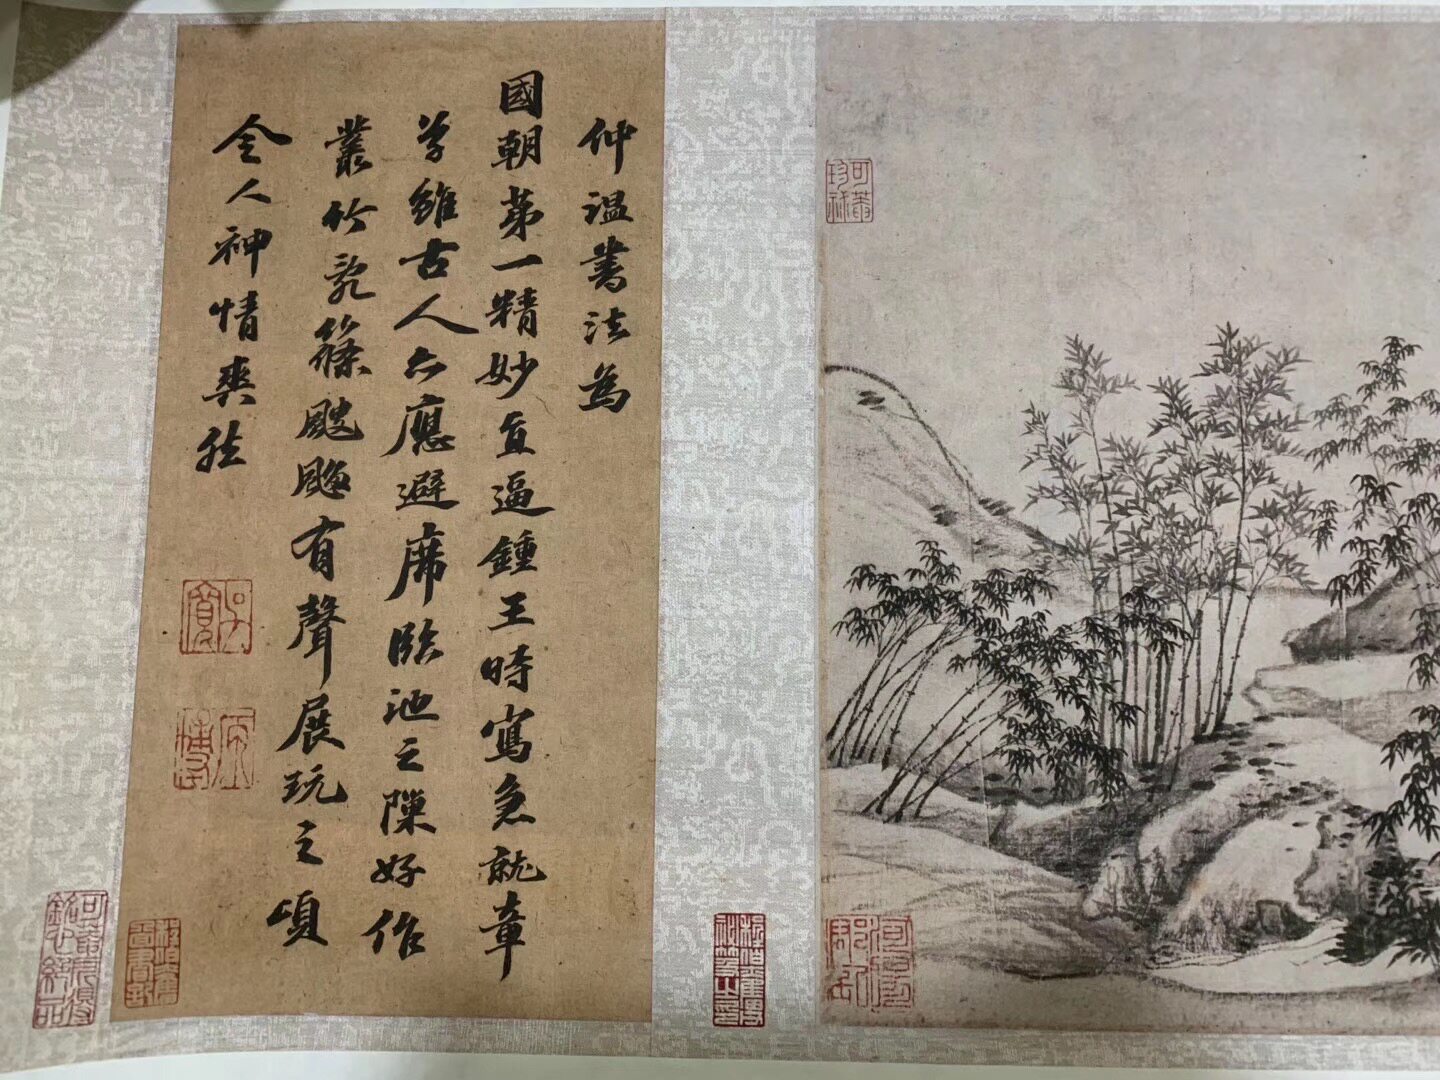 仲温書法為
國朝第一精妙直逼鍾王時寫急就章
草雖古人亦應避席臨池之隟好作
叢竹乳篠颼颼有聲展玩之頃
令人神情爽然